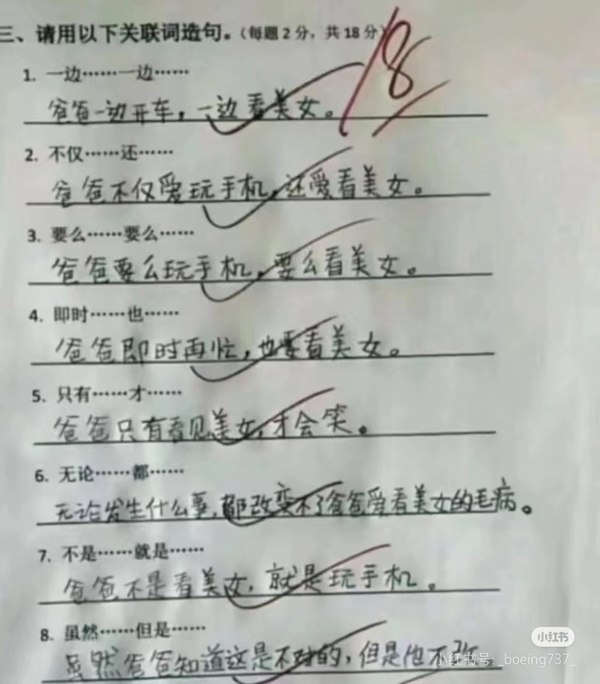 三、请用以下关联词造句。（每题2分，共18分）
18
1. 一边……一边……
爸爸一边开车，一边看美女。
2. 不仅……还……
爸爸不仅爱玩手机，还爱看美女。
3. 要么……要么……
爸爸要么玩手机，要么看美女。
4. 即时……也……
爸爸即时再忙，也要看美女。
5. 只有……才……
爸爸只有看见美女，才会笑。
6. 无论……都……
无论发生什么事，都改变不了爸爸爱看美女的毛病。
7. 不是……就是……
爸爸不是看美女，就是玩手机。
8. 虽然……但是……
虽然爸爸知道这是不对的，但是他不改。
小红书
小红书号：_boeing737_